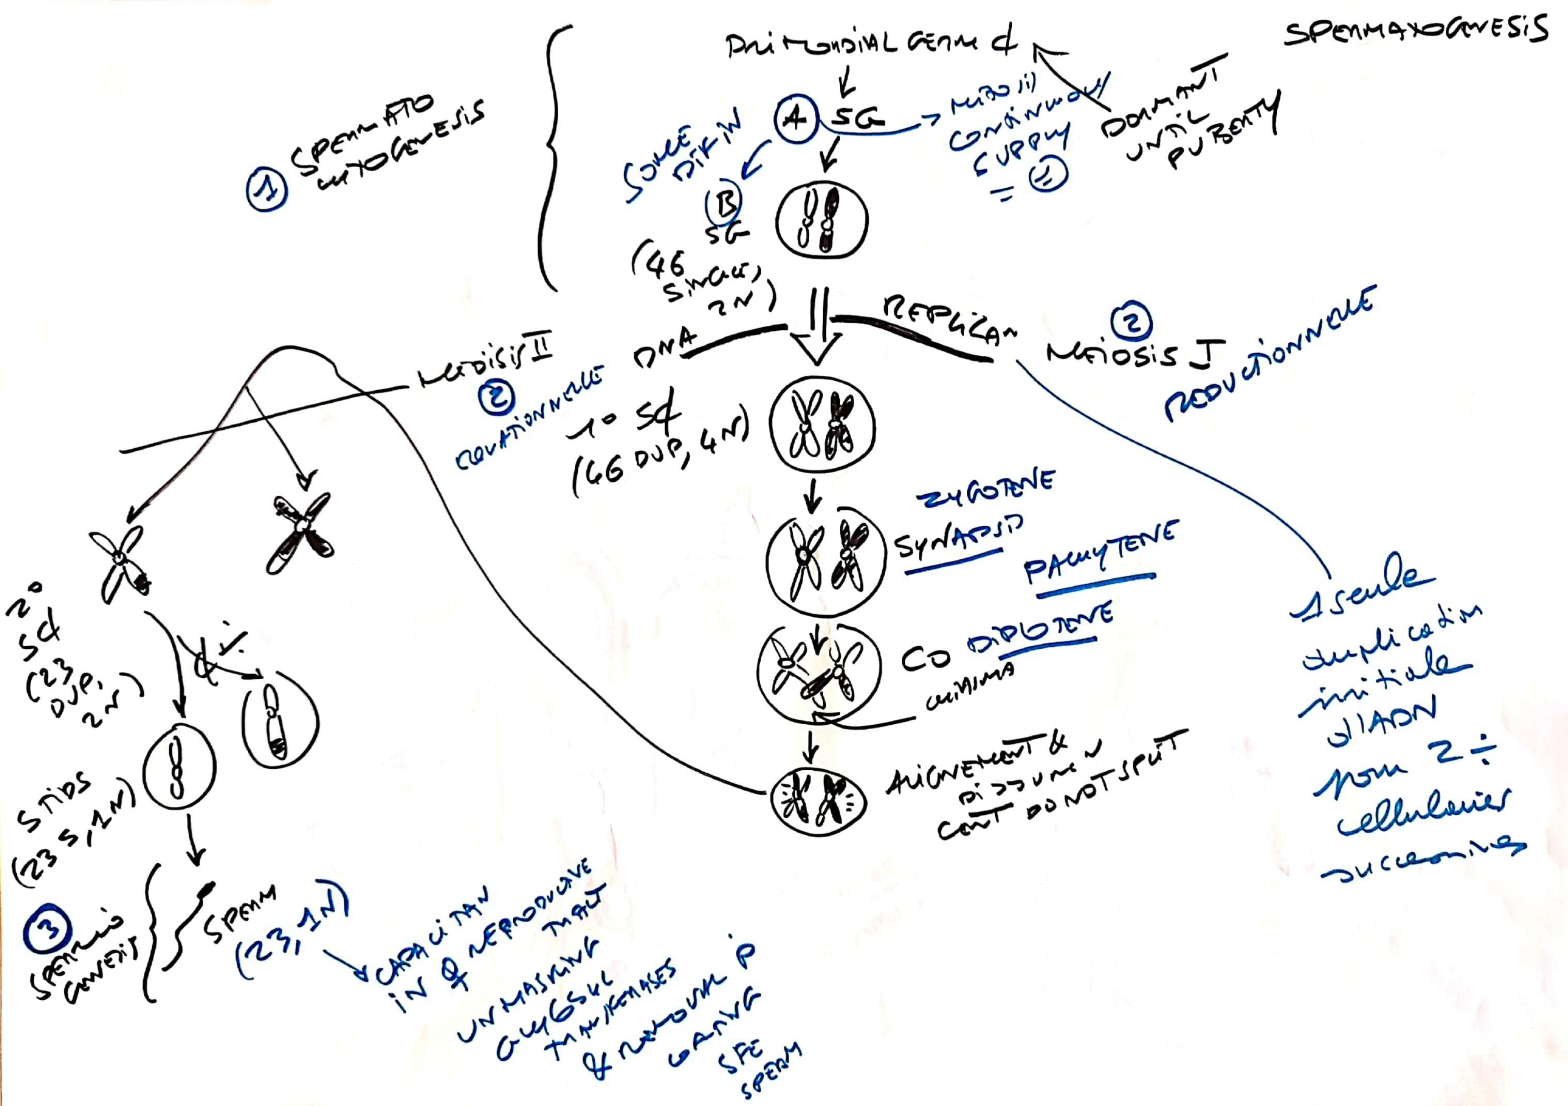 SPERMATOGENESIS
PRIMORDIAL GERM ¢
DORMANT
UNTIL
PUBERTY
1 SPERMATO
CYTOGENESIS
A SG
MITOSIS
CONTINUOUS
SUPPLY
= 1
SOME
DIF IN
B
SG
(46
SINGLE,
2N)
DNA REPLICAN
2
MEIOSIS I
REDUCTIONNELLE
MEIOSIS II
2
EQUATIONNELLE
1° S¢
(46 DUP, 4N)
ZYGOTENE
SYNAPSIS
PACHYTENE
CO DIPLOTENE
CHIASMA
ALIGNEMENT &
CENT DO NOT SPLIT
1 seule
duplication
initiale
d'ADN
pour 2 ÷
cellulaires
successives
2°
S¢
(23
DUP,
2N)
¢ ÷
STIDS
(23 S, 1N)
3
SPERMIO
GENESIS
SPERM
(23, 1N)
CAPACITAN
IN ♀ REPRODUCTIVE
TRACT
UNMASKING
GLYCOSYL
TRANSFERASES
& REMOVAL P
COATING
SFE
SPERM